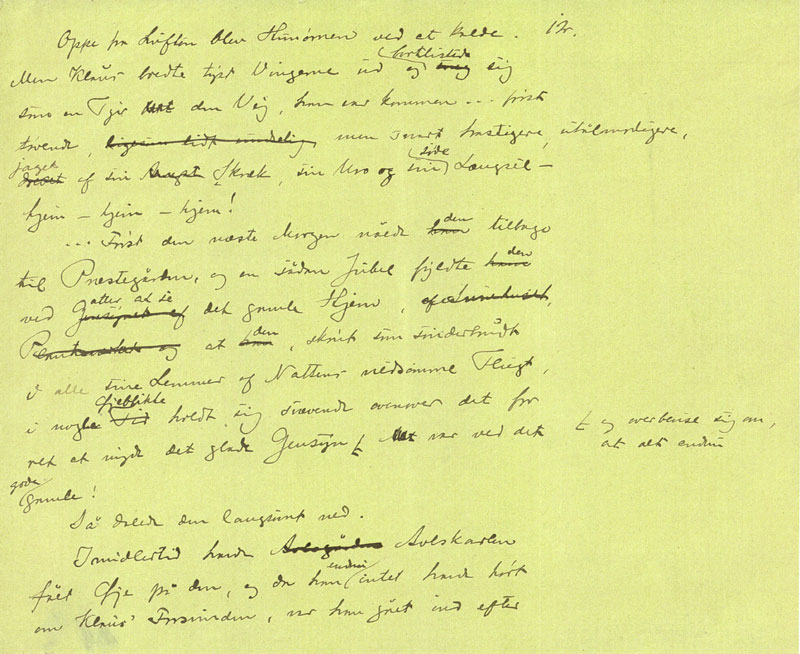 Oppe fra Luften blev Hunørnen ved at kalde.
bortlistede
Men Klaus bredte tyst Vingerne ud og tog sig
som en Tyv den Vej, han var kommen ... først
tøvende, ligesom lidt undselig, men snart hastigere, utålmodigere,
jaget søde
drevet af sin Angst Skræk, sin Uro og sin Længsel —
hjem — hjem — hjem!
den
... Først den næste Morgen nåede han tilbage
den
til Præstegården, og en sådan Jubel fyldte ham
atter at se
ved Gensynet af det gamle Hjem, af Duehuset,
den
og at han, skønt som sønderbrudt
i alle sine Lemmer af Nattens voldsomme Flugt,
Øjeblikke
i nogle Tid holdt sig svævende ovenover det for
ret at nyde det glade Gensyn var ved det og overbevise sig om,
at alt endnu
gode
gamle!
Så dalede den langsomt ned.
Imidlertid havde Avlsgården Avlskarlen
endnu
fået Øje på den, og da han intet havde hørt
om Klaus' Forsvinden, var han gået ind efter